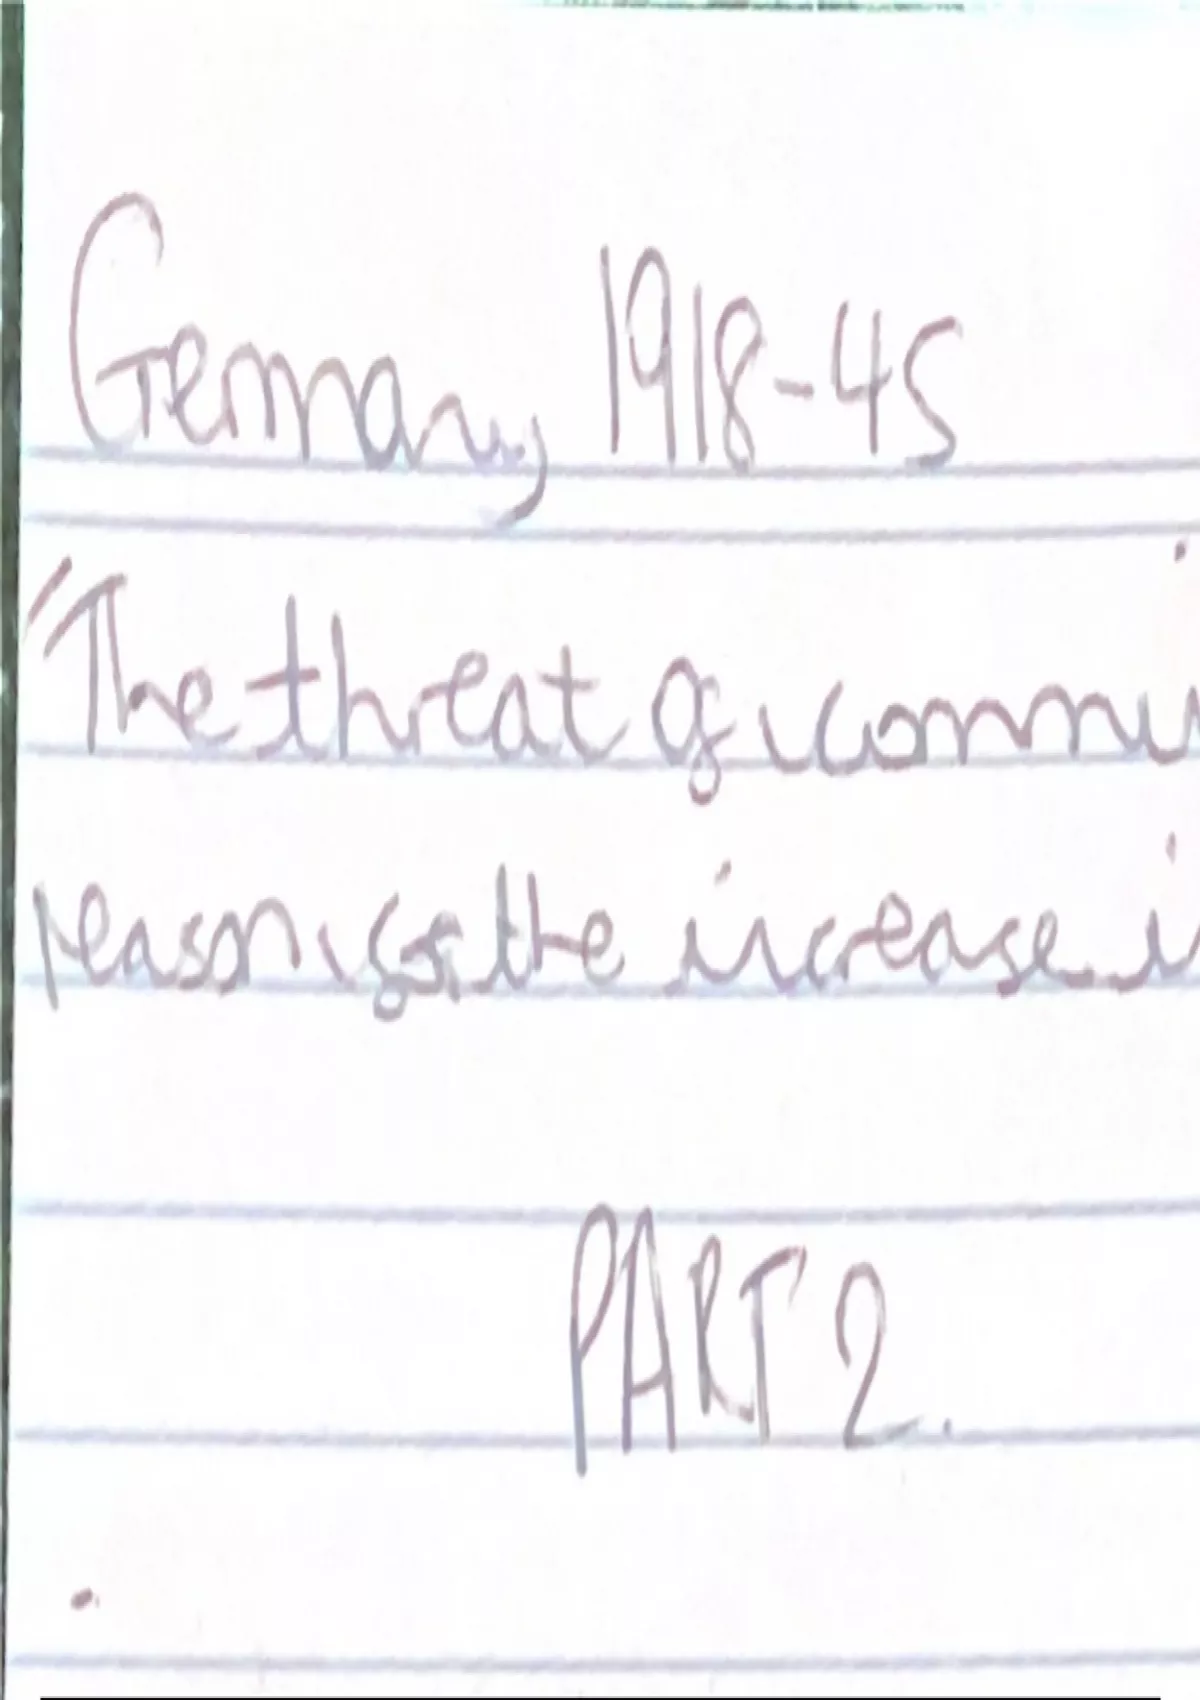 Germany 1918-45
"The threat of commu
reason for the increase i
PART 2.